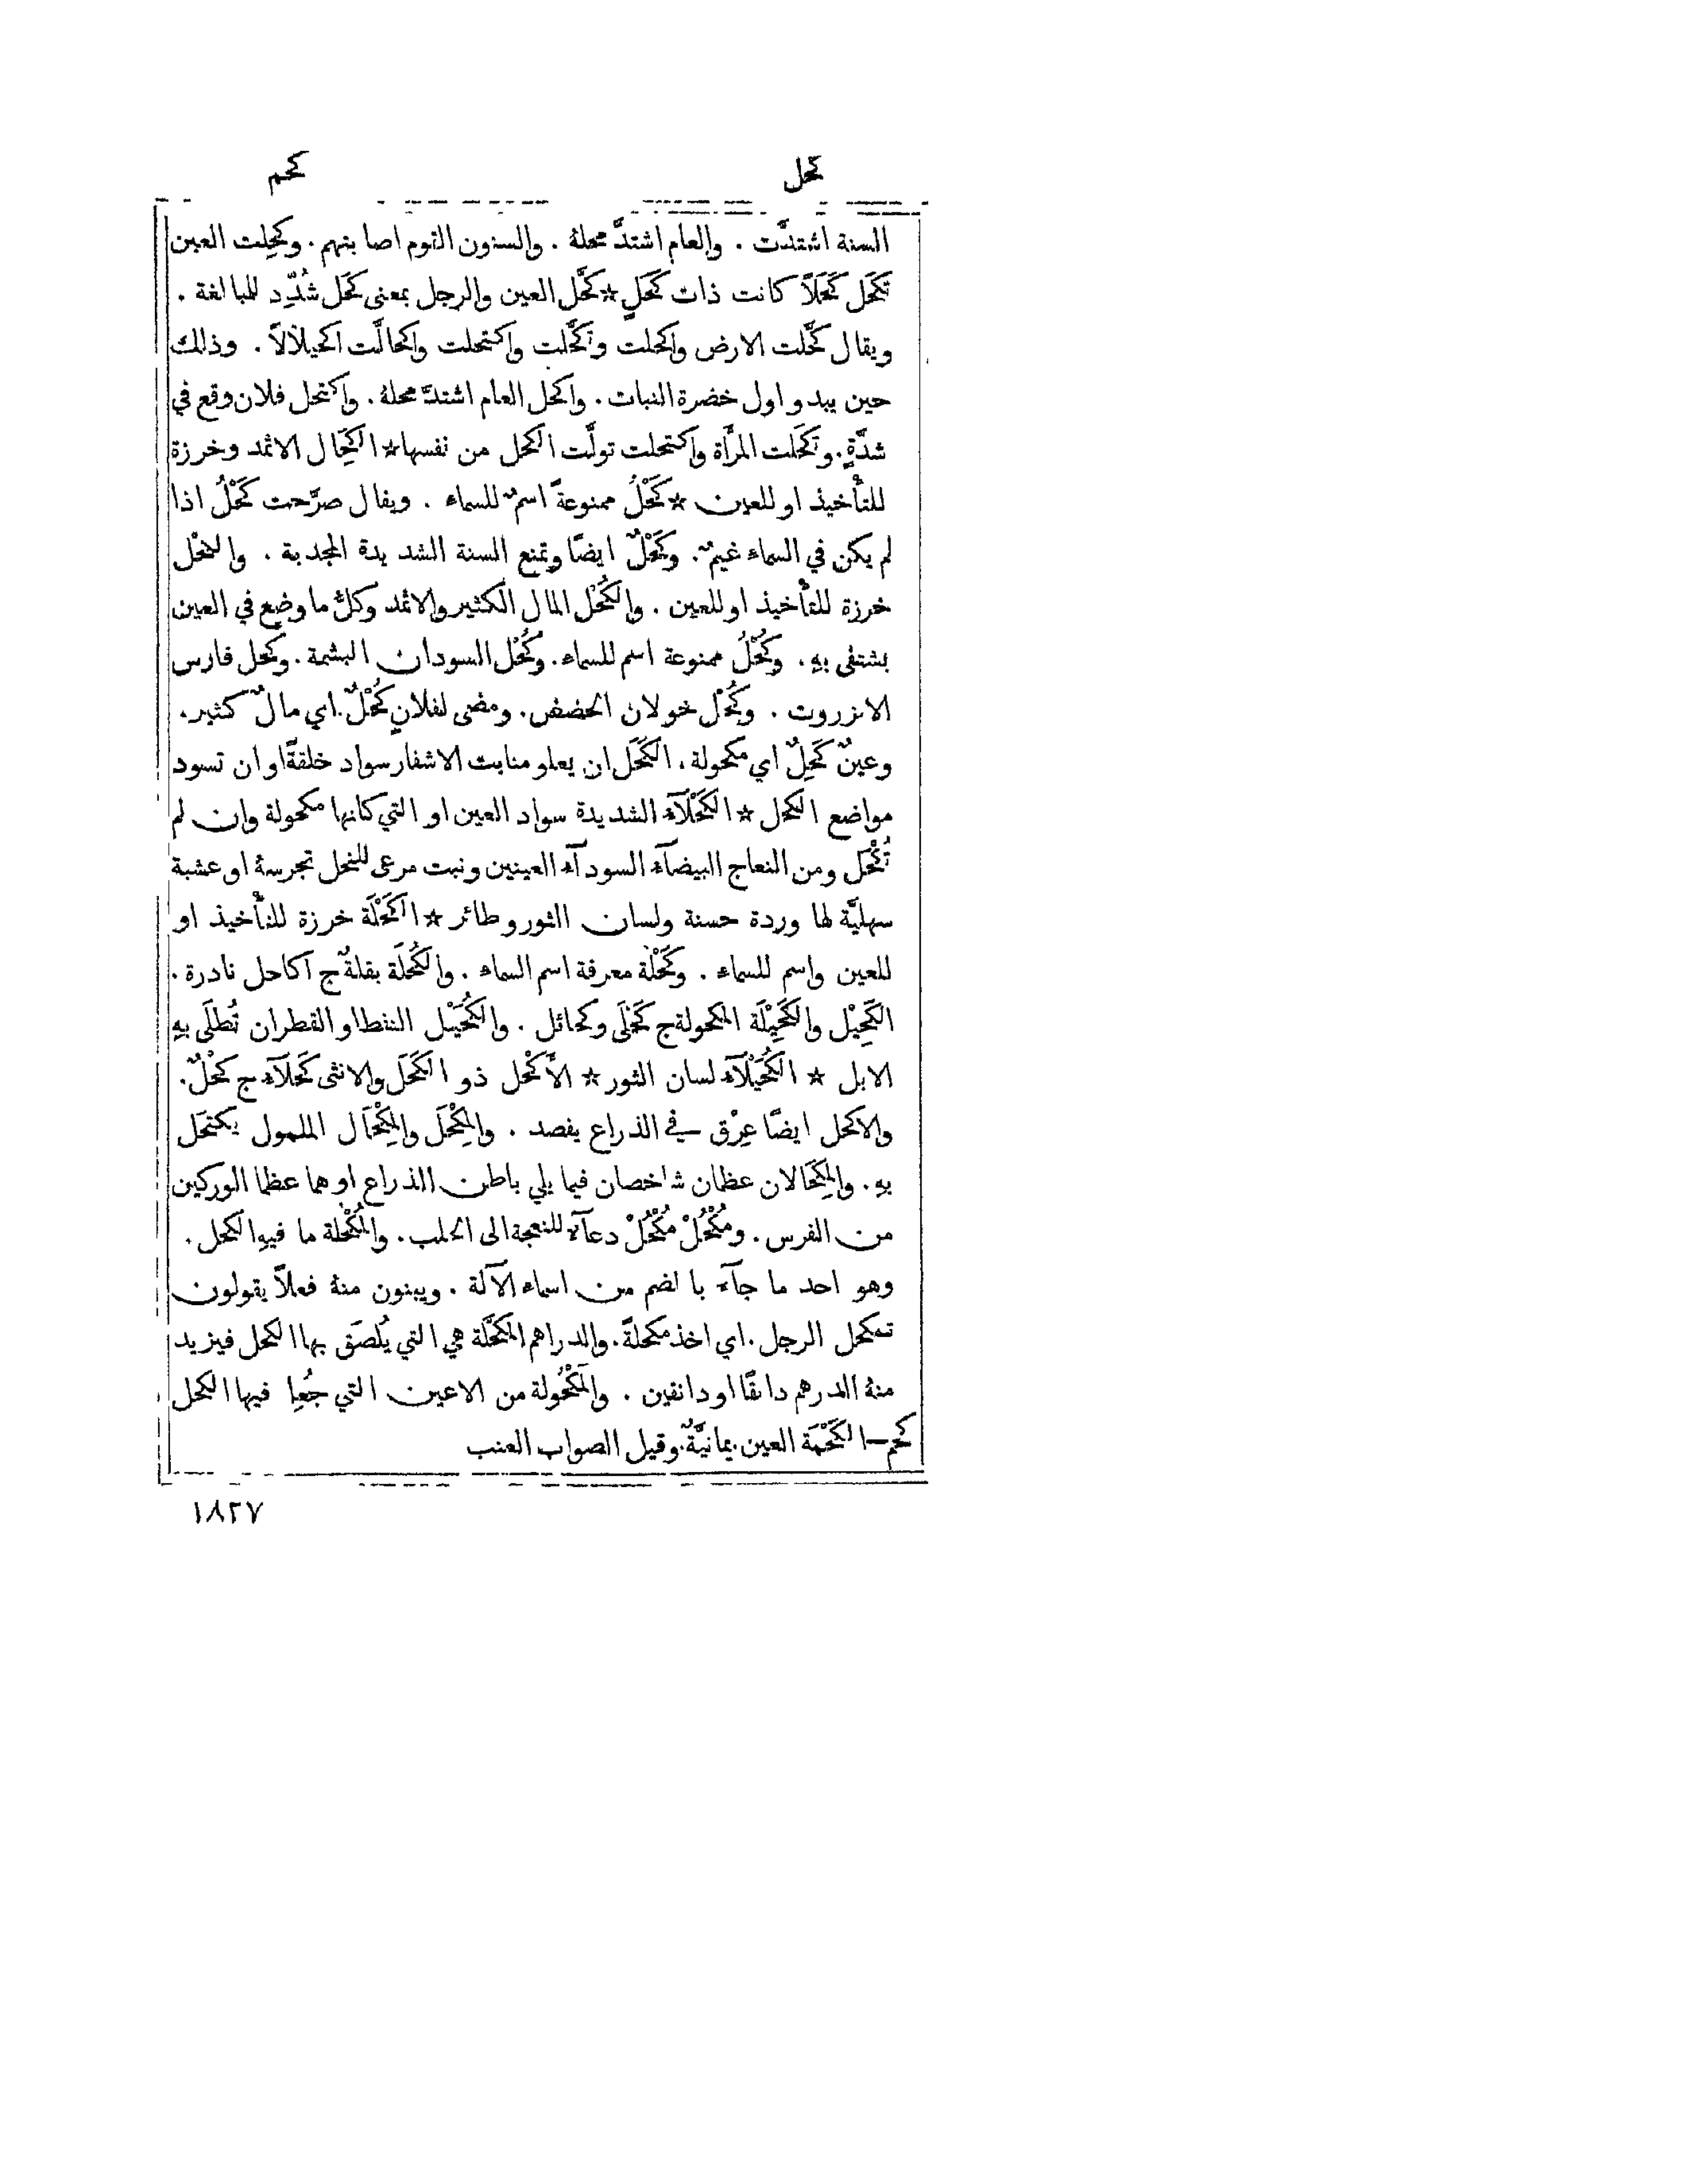 كحل كحم
السنة اشتدَّت . والعام اشتدَّ محلهُ . والسنون القوم اصابتهم . وكَحِلت العين
تَكحَل كَحَلاً كانت ذات كَحَلٍ * كحَّل العين والرجل بمعنى كحَل شُدِّد للمبالغة .
ويقال كحَّلت الارض واكحلت وتكحَّلت واكتحلت واكحالَّت اكحيلالاً . وذلك
حين يبدو اول خضرة النبات . واكحل العام اشتدَّ محلهُ . واكتحل فلان وقع في
شدَّةٍ . وتكحَّلت المرأَة واكتحلت تولَّت الكحل من نفسها * الكِحَال الاثمد وخرزة
للتأْخيذ او للعين * كَحْلُ ممنوعةً اسمٌ للسماء . ويقال صرَّحت كَحْلُ اذا
لم يكن في السماء غيمٌ . وكَحْلٌ ايضًا وتمنع السنة الشديدة المجدبة . والكَحْل
خرزة للتأْخيذ او للعين . والكُحْل المال الكثير والاثمد وكلُّ ما وضع في العين
يشتفى بهِ . وكُحْلُ ممنوعة اسم للسماء . وكُحْل السودان البشمة . وكحل فارس
الانزروت . وكُحْل خولان الحضض . ومضى لفلانٍ كُحْلٌ . اي مالٌ كثير .
وعينٌ كَحِلٌ اي مكحولة . الكَحَل ان يعلو منابت الاشفار سواد خلقةً او ان تسود
مواضع الكحل * الكَحْلَاءَ الشديدة سواد العين او التي كانها مكحولة وان لم
تُكْحَل ومن النعاج البيضآء السودآء العينين ونبت مرعى للنحل تجرسهُ او عشبة
سهليَّة لها وردة حسنة ولسان الثور وطائر * الكَحْلَة خرزة للتأْخيذ او
للعين واسم للسماء . وكَحْلَة معرفة اسم السماء . والكُحْلَة بقلةٌ ج اكاحل نادرة .
الكَحِيْل والكَحِيْلَة المكحولة ج كَحْلَى وكحائل . والكُحَيْل النفط او القطران تُطلَى بهِ
الابل * الكُحَيْلَآء لسان الثور * الأَكْحَل ذو الكَحَل والانثى كَحلَآء ج كُحْلٌ .
والاكحل ايضًا عِرْق في الذراع يفصد . والمِكْحَل والمِكْحَال الملمول يكتحل
بهِ . والمِكْحَالان عظمان شاخصان فيما يلي باطن الذراع او هما عظما الوركين
من الفرس . ومُكْحُلْ مُكْحُلْ دعآءٌ للنعجة الى الحلب . والمُكْحُلة ما فيهِ الكحل .
وهو احد ما جآءَ بالضم من اسماء الآلة . ويبنون منهُ فعلاً يقولون
تمكحل الرجل . اي اخذ مكحلةً . والدراهم المكحَّلة هي التي يُلصَق بها الكحل فيزيد
منهُ الدرهم دانقًا او دانقين . والمَكْحُولة من الاعين التي جُعِل فيها الكحل
كحم — الكَحْمَة العين . يمانيَّةٌ . وقيل الصواب العنب
١٨٢٧